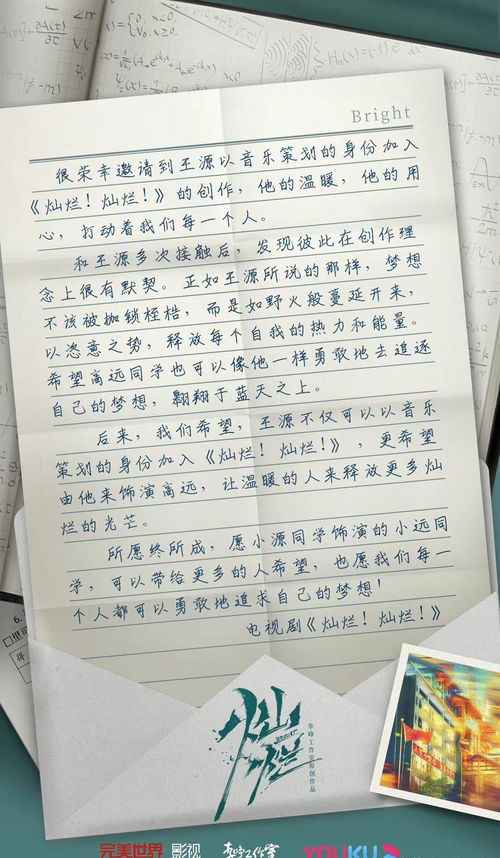 Bright
很荣幸邀请到王源以音乐策划的身份加入
《灿烂!灿烂!》的创作,他的温暖,他的用
心,打动着我们每一个人。
和王源多次接触后,发现彼此在创作理
念上很有默契。正如王源所说的那样,梦想
不该被枷锁桎梏,而是如野火般蔓延开来,
以恣意之势,释放每个自我的热力和能量。
希望高远同学也可以像他一样勇敢地去追逐
自己的梦想,翱翔于蓝天之上。
后来,我们希望,王源不仅可以以音乐
策划的身份加入《灿烂!灿烂!》,更希望
由他来饰演高远,让温暖的人来释放更多灿
烂的光芒。
所愿终所成,愿小源同学饰演的小远同
学,可以带给更多的人希望,也愿我们每一
个人都可以勇敢地追求自己的梦想!
电视剧《灿烂!灿烂!》
灿烂
BRIGHT
李峰工作室原创作品
完美世界 影视
李峰工作室
YOUKU